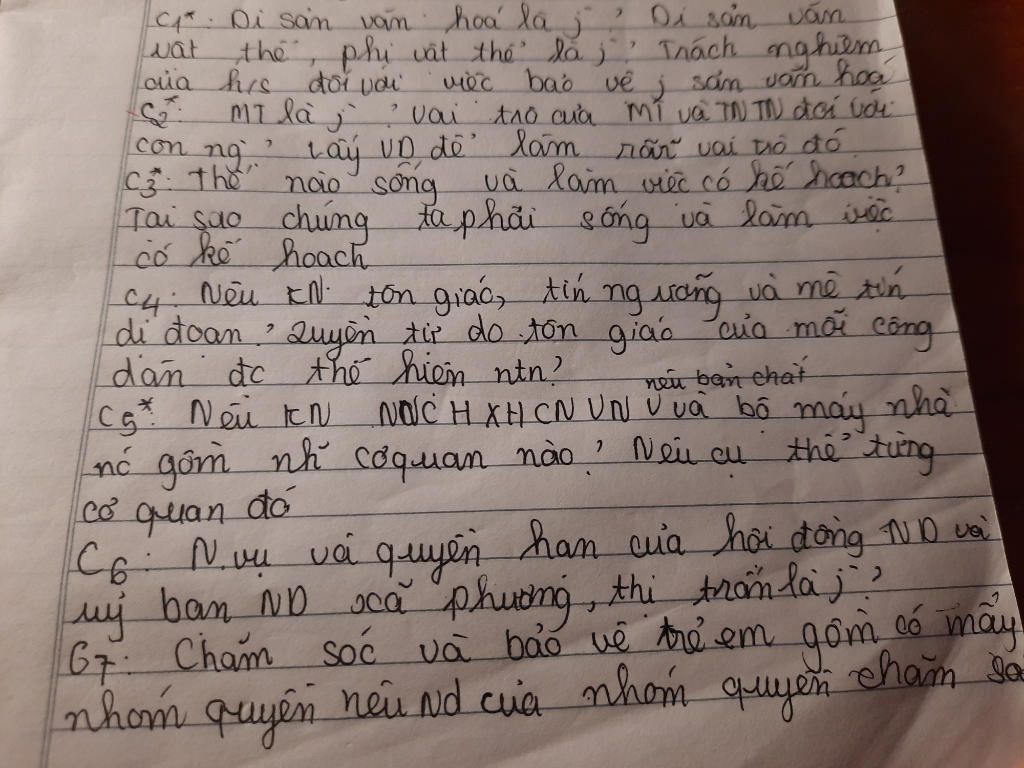 C1*: Di sản văn hoá là j? Di sản văn
vât thể, phi vât thể là j? Trách nghiêm
của h/s đối với viêc bảo vê j sản văn hoá
C2*: MT là j? Vai trò của MT và TNTN đối với
con ng? Lấy VD để làm rõ vai trò đó
C3*: Thế nào sống và làm viêc có kế hoach?
Tai sao chúng ta phải sống và làm viêc
có kế hoach
C4: Nêu KN tôn giáo, tín ngưỡng và mê tín
di đoan? Quyền tự do tôn giáo của mỗi công
dân đc thể hiên ntn?
nêu bản chất
C5*: Nêu KN NNCHXHCNVN V và bô máy nhà
nc gồm nh cơ quan nào? Nêu cu thể từng
cơ quan đó
C6: N.vụ và quyền han của hôi đồng ND và
uỷ ban ND xã phường, thi trấn là j?
C7: Chăm sóc và bảo vê trẻ em gồm có mấy
nhóm quyền nêu Nd của nhóm quyền chăm